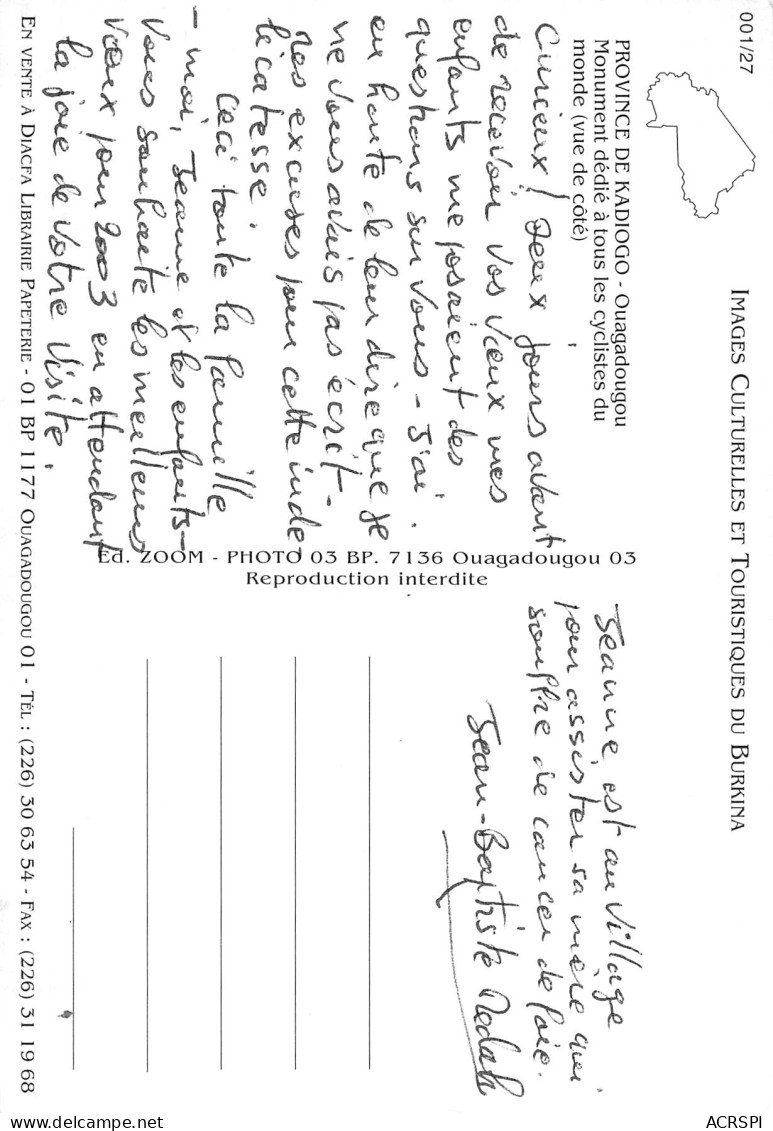 001/27
IMAGES CULTURELLES ET TOURISTIQUES DU BURKINA
PROVINCE DE KADIOGO - Ouagadougou
Monument dédié à tous les cyclistes du
monde (vue de côté)
Curieux ! Deux jours avant
de recevoir vos vœux mes
enfants me posaient des
questions sur vous - J'ai
eu honte de leur dire que je
ne vous avais pas écrit -
Mes excuses pour cette indé-
licatesse.
Ceci toute la famille
- moi, Jeanne et les enfants -
vous souhaite les meilleurs
vœux pour 2003 en attendant
la joie de votre visite.
Ed. ZOOM - PHOTO 03 BP. 7136 Ouagadougou 03
Reproduction interdite
Jeanne est au village
pour assister sa mère qui
souffre de cancer de foie.
Jean-Baptiste Nedah
EN VENTE À DIACFA LIBRAIRIE PAPETERIE - 01 BP 1177 OUAGADOUGOU 01 - TÉL : (226) 30 63 54 - FAX : (226) 31 19 68
ACRSPI